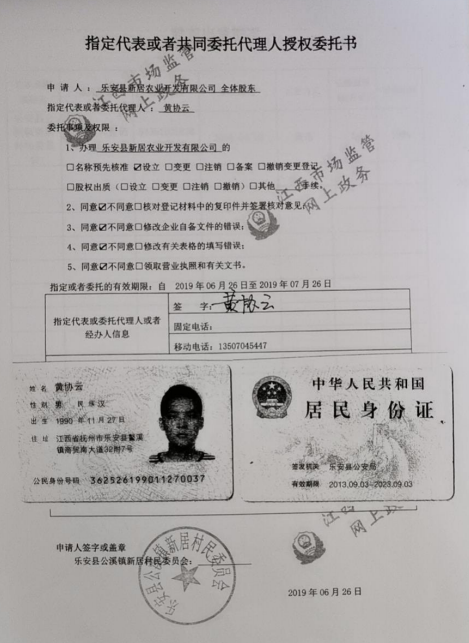 指定代表或者共同委托代理人授权委托书
申 请 人 ： 乐安县新居农业开发有限公司 全体股东
指定代表或者委托代理人 ： 黄协云
委托事项及权限 ：
1、办理 乐安县新居农业开发有限公司 的
□名称预先核准 ☑设立 □变更 □注销 □备案 □撤销变更登记
□股权出质（□设立 □变更 □注销 □撤销）□其他 手续。
2、同意☑不同意□核对登记材料中的复印件并签署核对意见；
3、同意☑不同意□修改企业自备文件的错误；
4、同意☑不同意□修改有关表格的填写错误；
5、同意☑不同意□领取营业执照和有关文书。
指定或者委托的有效期限：自 2019 年 06 月 26 日至 2019 年 07 月 26 日
指定代表或委托代理人或者
经办人信息
签 字：黄协云
固定电话：
移动电话：13507045447
姓 名 黄协云
性 别 男 民 族 汉
出 生 1990 年 11 月 27 日
住 址 江西省抚州市乐安县鳌溪
镇南大道32附7号
公民身份号码 362526199011270037
中华人民共和国
居民身份证
签发机关 乐安县公安局
有效期限 2013.09.03-2023.09.03
申请人签字或盖章
乐安县公溪镇新居村民委员会：
乐安县公溪镇新居村民委员会
2019 年 06 月 26 日
江西市场监管
网上政务
江西市场监管
网上政务
网上政务